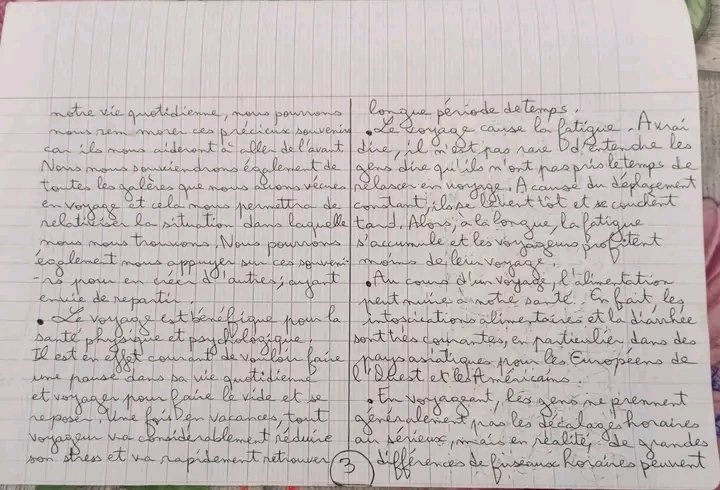 notre vie quotidienne, nous pourrons
nous rem morer ces précieux souvenirs
car ils nous aideront à aller de l'avant
Nous nous souviendrons également de
toutes les galères que nous avons vécues
en voyage et cela nous permettra de
relativiser la situation dans laquelle
nous nous trouvons. Nous pourrons
également nous appuyer sur ces souveni-
-rs pour en créer d'autres, ayant
envie de repartir.
• Le voyage est bénéfique pour la
santé physique et psychologique
Il est en effet courant de vouloir faire
une pause dans sa vie quotidienne
et voyager pour faire le vide et se
reposer. Une fois en vacances, tout
voyageur va considérablement réduire
son stress et va rapidement retrouver
3
longue période de temps.
• Le voyage cause la fatigue. A vrai
dire, il n'est pas rare d'entendre les
gens dire qu'ils n'ont pas pris le temps de
relaxer en voyage. A cause du déplacement
constant, ils se lèvent tôt et se couchent
tard. Alors, à la longue, la fatigue
s'accumule et les voyageurs profitent
moins de leur voyage.
• Au cours d'un voyage, l'alimentation
peut nuire à notre santé. En fait, les
intoxications alimentaires et la diarrhée
sont très courantes, en particulier dans des
pays asiatiques pour les Européens de
l'Ouest et les Américains.
• En voyageant, les gens ne prennent
généralement pas les décalages horaires
au sérieux, mais en réalité, de grandes
différences de fuseaux horaires peuvent